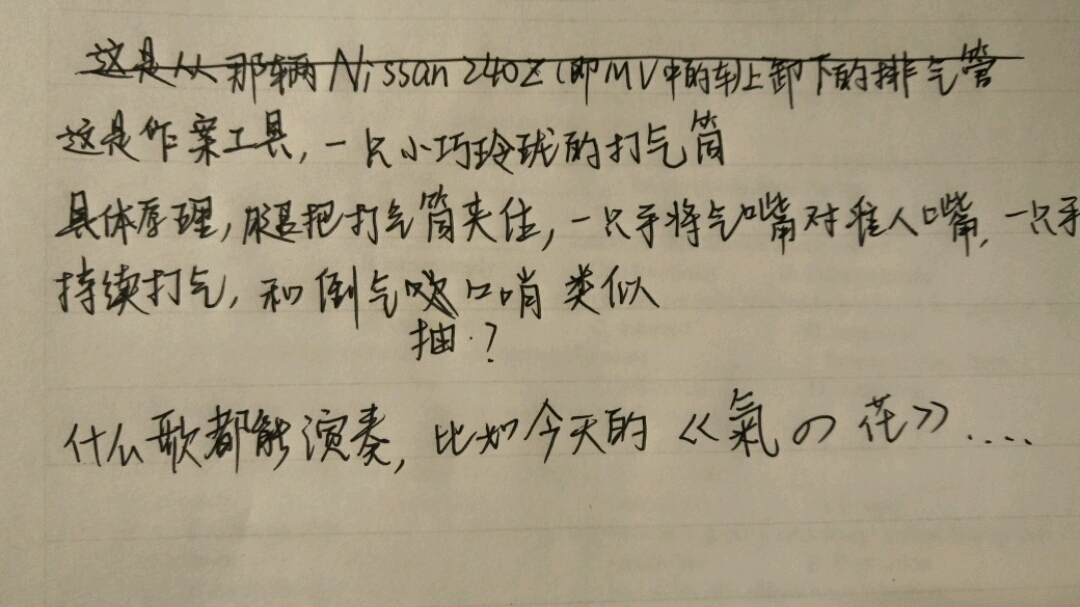 这是从那辆Nissan 240Z(即MV中的车)上卸下的排气管
这是作案工具,一只小巧玲珑的打气筒
具体原理,腿把打气筒夹住,一只手将气嘴对准人嘴,一只手
持续打气,和倒气吹口哨类似
抽.?
什么歌都能演奏,比如今天的《氣の花》....